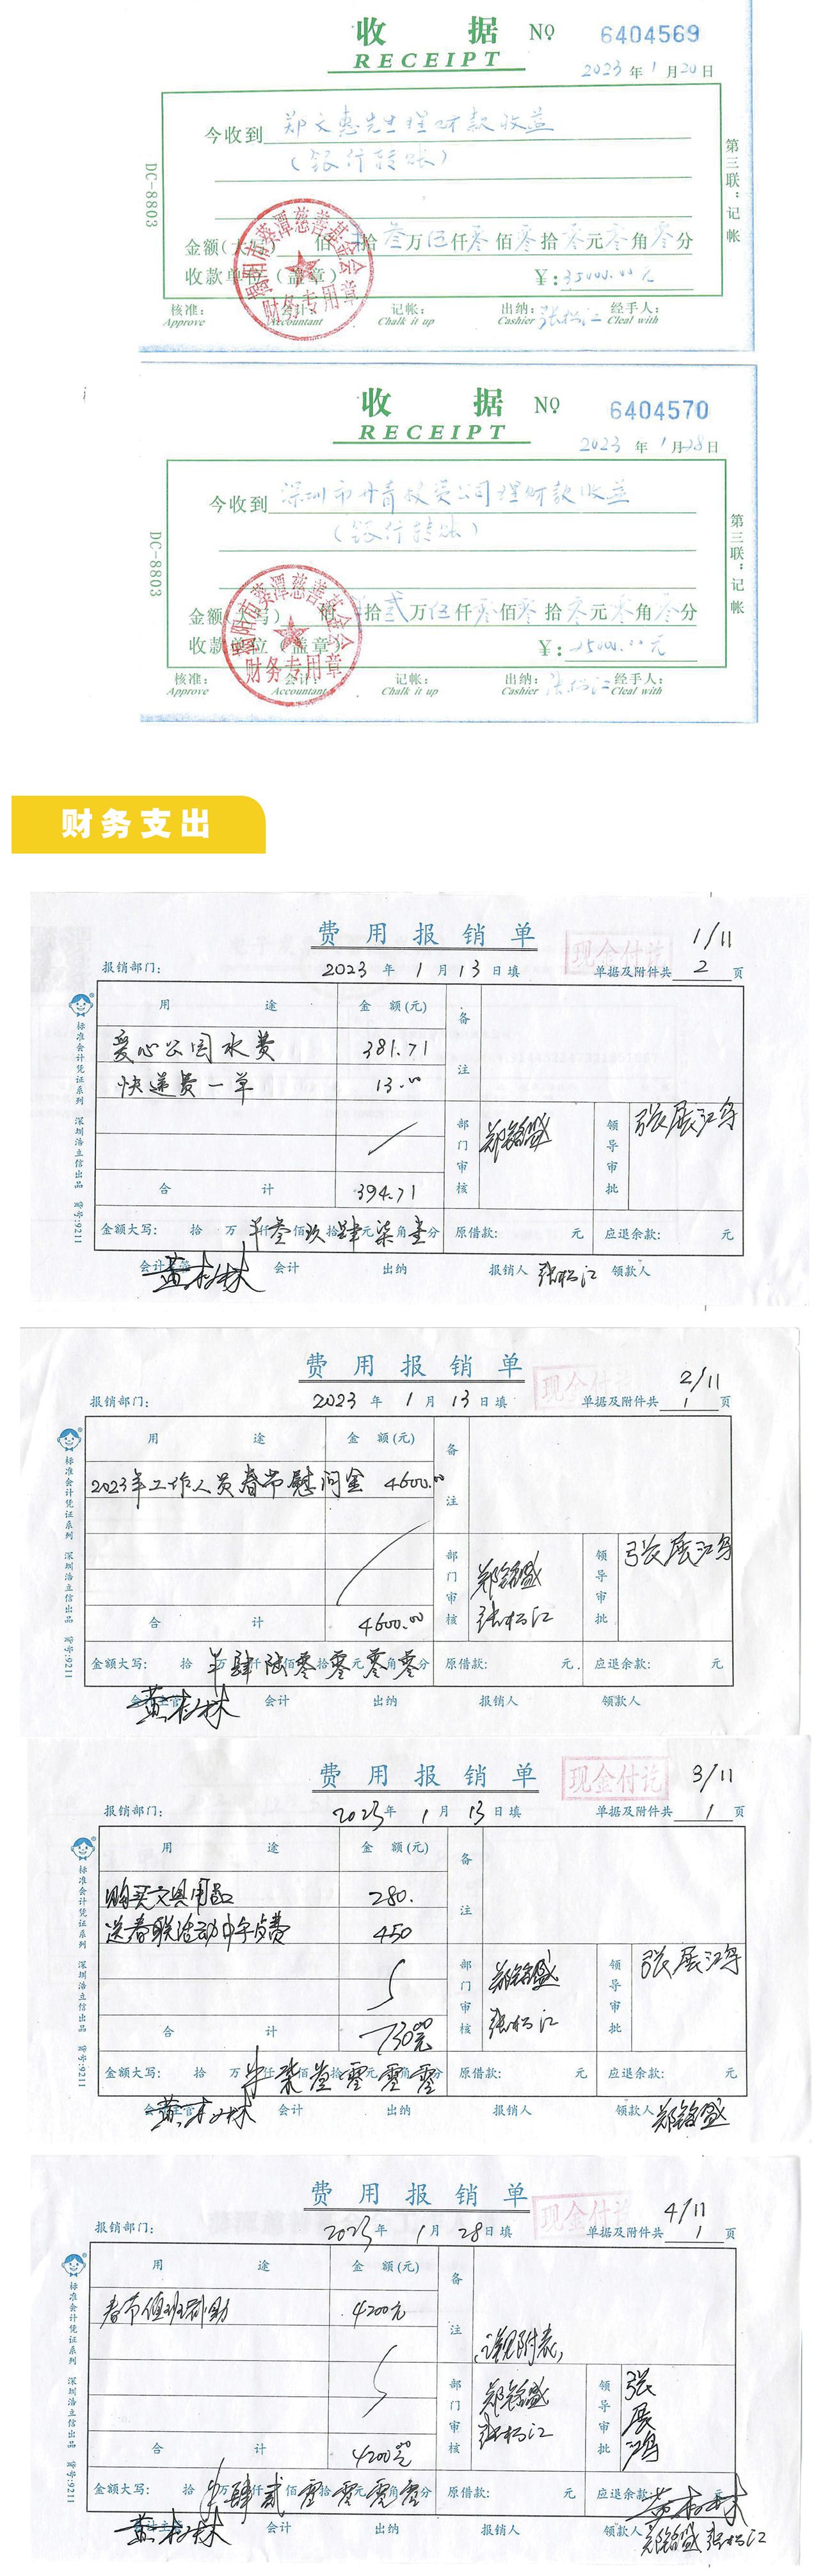 收 据 NO 6404569
RECEIPT
2023 年 1 月 20 日
今收到 郑文惠先生理财款收益
(银行转账)
DC-8803
第三联：记帐
揭阳市葵潭慈善基金会
财务专用章
金额(大写) 佰 拾 叁万 伍仟 零佰 零拾 零元 零角 零分
收款单位(盖章) ¥：35000.00元
核准： 会计： 记帐： 出纳： 张松江 经手人：
Approve Accountant Chalk it up Cashier Cleal with
收 据 NO 6404570
RECEIPT
2023 年 1 月 28 日
今收到 深圳市丹青投资公司理财款收益
(银行转账)
DC-8803
第三联：记帐
揭阳市葵潭慈善基金会
财务专用章
金额(大写) 佰 拾 贰万 伍仟 零佰 零拾 零元 零角 零分
收款单位(盖章) ¥：25000.00元
核准： 会计： 记帐： 出纳： 张松江 经手人：
Approve Accountant Chalk it up Cashier Cleal with
财务支出
费用报销单 现金付讫 1/11
报销部门： 2023 年 1 月 13 日填 单据及附件共 2 页
标准会计凭证系列 深圳浩立信出品 货号:9211
用 途 金 额(元) 备注
爱心公园水费 381.71
快递费一单 13.00
部门审核 郑铭盛 领导审批 张展鸿
合 计 394.71
金额大写： 拾 万 仟 叁佰 玖拾 肆元 柒角 壹分 原借款： 元 应退余款： 元
会计主管 黄树林 会计 出纳 报销人 张松江 领款人
费用报销单 现金付讫 2/11
报销部门： 2023 年 1 月 13 日填 单据及附件共 1 页
标准会计凭证系列 深圳浩立信出品 货号:9211
用 途 金 额(元) 备注
2023年工作人员春节慰问金 4600.00
部门审核 郑铭盛 张松江 领导审批 张展鸿
合 计 4600.00
金额大写： 拾 万 肆仟 陆佰 零拾 零元 零角 零分 原借款： 元 应退余款： 元
会计主管 黄树林 会计 出纳 报销人 领款人
费用报销单 现金付讫 3/11
报销部门： 2023 年 1 月 13 日填 单据及附件共 1 页
标准会计凭证系列 深圳浩立信出品 货号:9211
用 途 金 额(元) 备注
购买文具用品 280.
送春联活动中午点费 450
部门审核 郑铭盛 张松江 领导审批 张展鸿
合 计 730元
金额大写： 拾 万 仟 柒 叁 零 零 零 分 原借款： 元 应退余款： 元
会计主管 黄树林 会计 出纳 报销人 领款人 郑铭盛
费用报销单 现金付讫 4/11
报销部门： 2023 年 1 月 28 日填 单据及附件共 1 页
标准会计凭证系列 深圳浩立信出品 货号:9211
用 途 金 额(元) 备注
春节值班补助 4200元
详见附表
部门审核 郑铭盛 张松江 领导审批 张展鸿
合 计 4200元
金额大写： 拾 万 肆仟 贰佰 零拾 零元 零角 零分 原借款： 元 应退余款： 元
会计主管 黄树林 会计 出纳 报销人 领款人 黄树林
郑铭盛 张松江